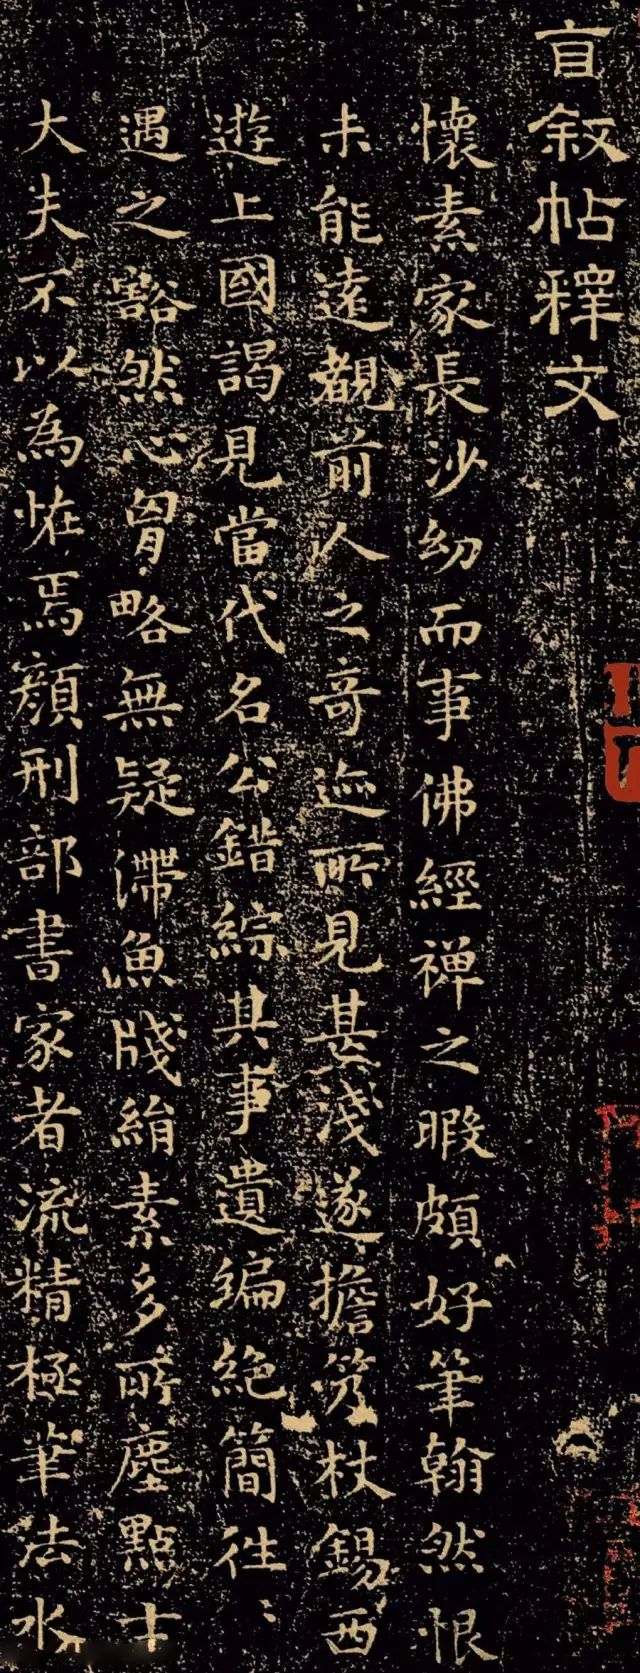 自敘帖釋文
懷素家長沙幼而事佛經禪之暇頗好筆翰然恨
未能遠覩前人之奇迹所見甚淺遂擔笈杖錫西
遊上國謁見當代名公錯綜其事遺編絕簡往〻
遇之豁然心胷略無疑滯魚牋絹素多所塵點士
大夫不以為恠焉顏刑部書家者流精極筆法水